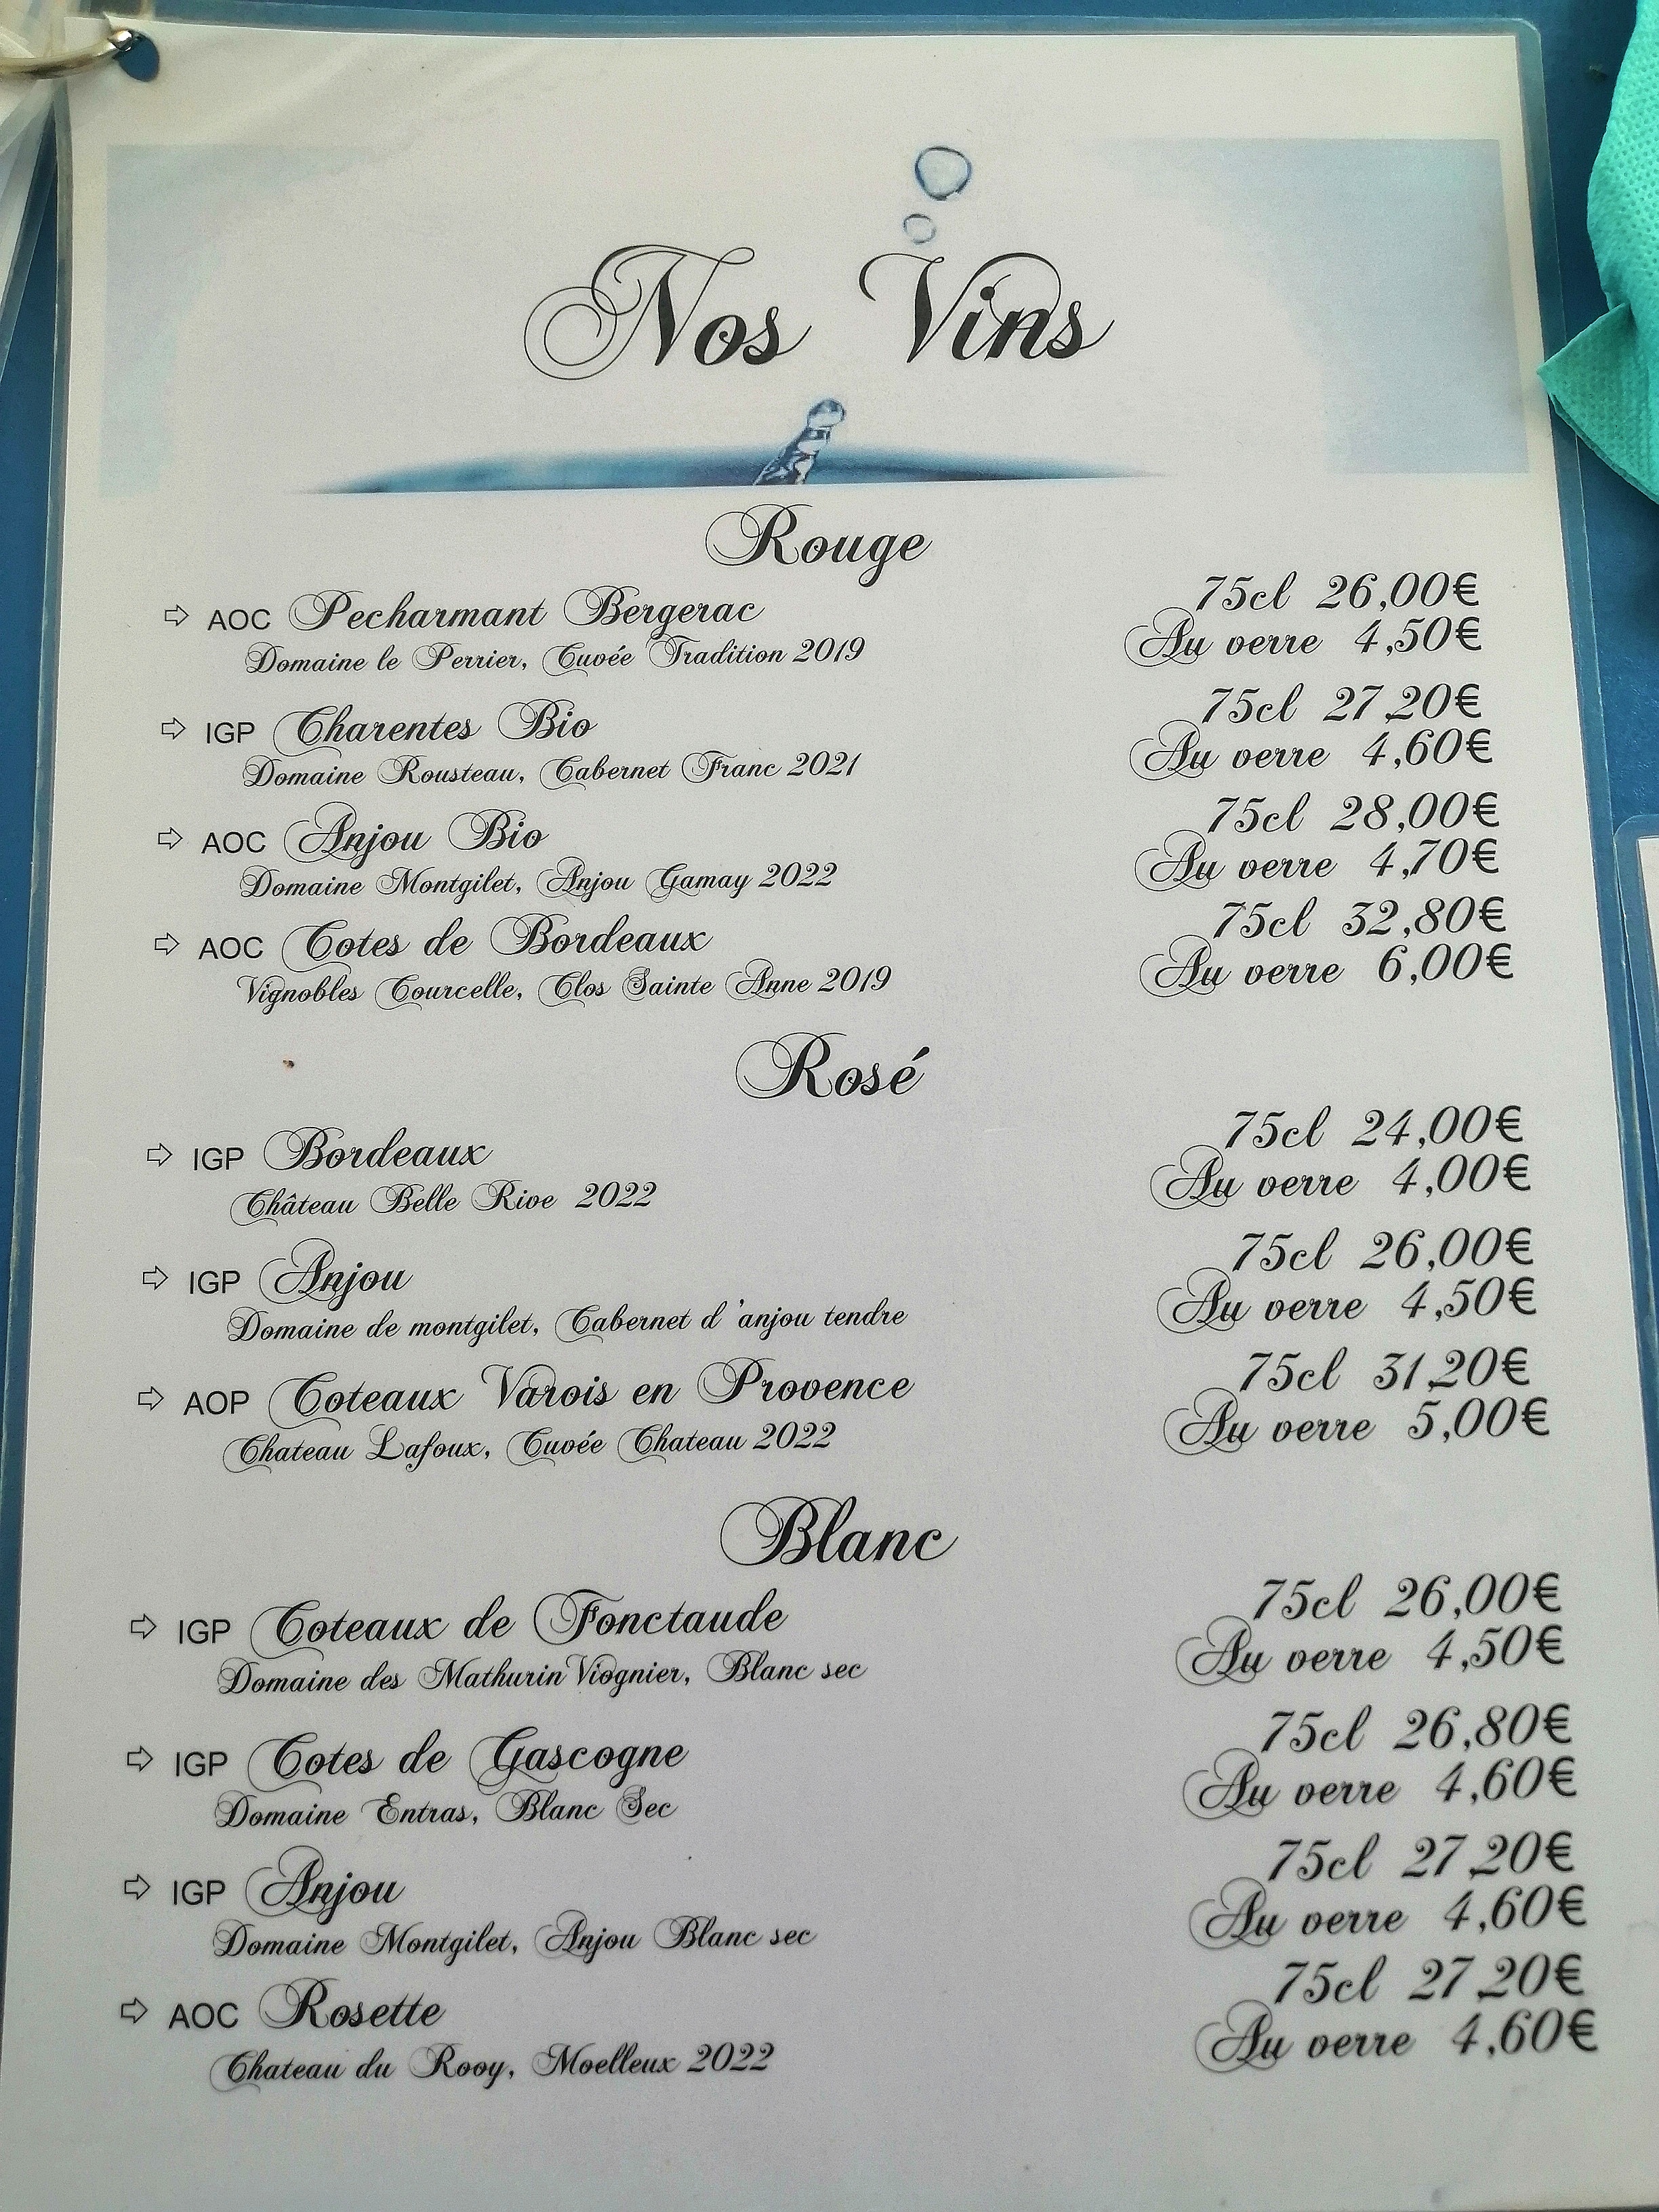 Nos Vins
Rouge
⇨ AOC Pecharmant Bergerac 75cl 26,00€
Domaine le Perrier, Cuvée Tradition 2019 Au verre 4,50€
⇨ IGP Charentes Bio 75cl 27,20€
Domaine Rousteau, Cabernet Franc 2021 Au verre 4,60€
⇨ AOC Anjou Bio 75cl 28,00€
Domaine Montgilet, Anjou Gamay 2022 Au verre 4,70€
⇨ AOC Cotes de Bordeaux 75cl 32,80€
Vignobles Courcelle, Clos Sainte Anne 2019 Au verre 6,00€
Rosé
⇨ IGP Bordeaux 75cl 24,00€
Château Belle Rive 2022 Au verre 4,00€
⇨ IGP Anjou 75cl 26,00€
Domaine de montgilet, Cabernet d'anjou tendre Au verre 4,50€
⇨ AOP Coteaux Varois en Provence 75cl 31,20€
Chateau Lafoux, Cuvée Chateau 2022 Au verre 5,00€
Blanc
⇨ IGP Coteaux de Fonctaude 75cl 26,00€
Domaine des Mathurin Viognier, Blanc sec Au verre 4,50€
⇨ IGP Cotes de Gascogne 75cl 26,80€
Domaine Entras, Blanc Sec Au verre 4,60€
⇨ IGP Anjou 75cl 27,20€
Domaine Montgilet, Anjou Blanc sec Au verre 4,60€
⇨ AOC Rosette 75cl 27,20€
Chateau du Rooy, Moelleux 2022 Au verre 4,60€